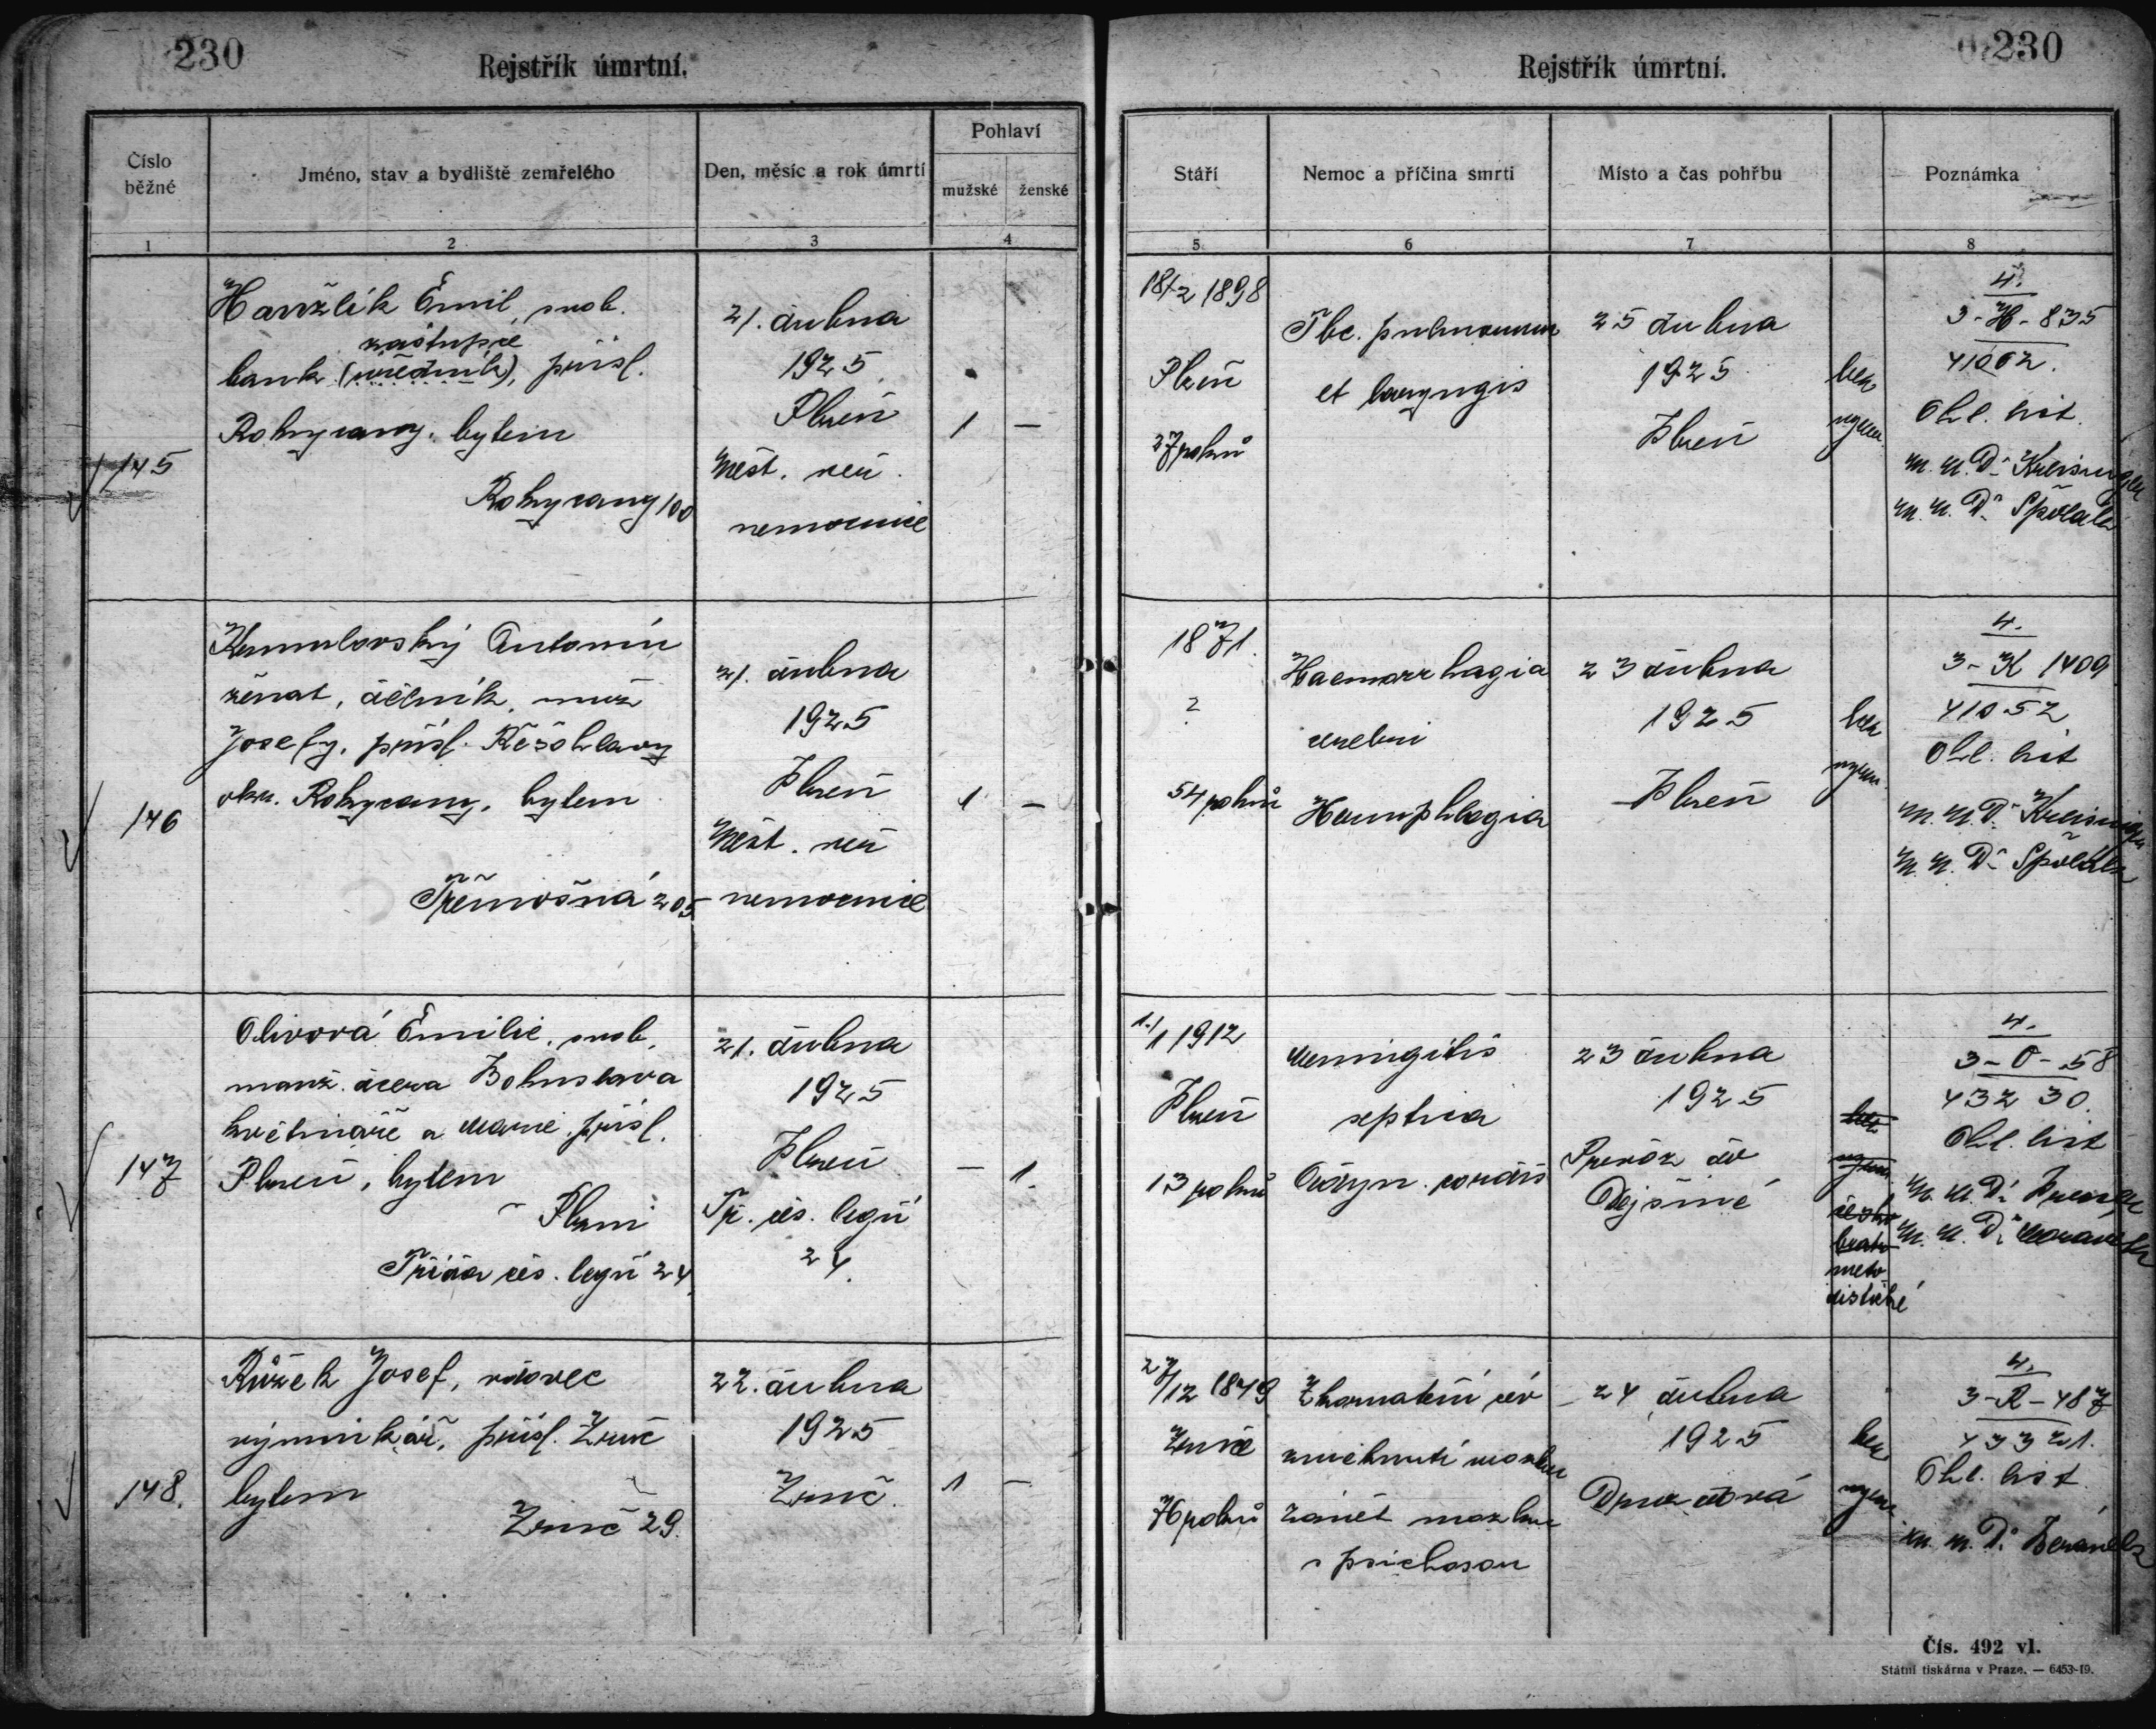 230
Rejstřík úmrtní.
Číslo běžné
Jméno, stav a bydliště zemřelého
Den, měsíc a rok úmrtí
Pohlaví
mužské
ženské
1
2
3
4
145
Havržlík Emil, svob.
zástupce
bank (úředník), přísl.
Rokycany, bytem
Rokycany 100
21. dubna
1925
Plzeň
Měst. veř.
nemocnice
1
—
146
Antonín
ženat, dělník, muž
Josefy, přísl.
okr. Rokycany, bytem
Třemošná 205
21. dubna
1925
Plzeň
Měst. veř
nemocnice
1
—
147
Olivová Emilie, svob.
manž. dcera Bohuslava
květináře a Marie, přísl.
Plzeň, bytem
Plzni
Třída čs. legií 24
21. dubna
1925
Plzeň
Tř. čs. legií
24.
—
1.
148.
Růžek Josef, vdovec
výminkář, přísl. Zruč
bytem
Zruč 29.
22. dubna
1925
Zruč.
1
—
230
Rejstřík úmrtní.
Stáří
Nemoc a příčina smrti
Místo a čas pohřbu
Poznámka
5
6
7
8
18/2 1898
Plzeň
27 roků
Tbc. pulmonum
et laryngis
25 dubna
1925
Plzeň
bez
vyzn.
4.
3-H-835
41002.
Ohl. list.
M. U. Dr. Kreisinger
M. U. Dr. Špölák
1871.
?
54 roků
Haemorrhagia
cerebri
Hemiphlegia
23 dubna
1925
Plzeň
bez
vyzn.
4.
3-K 1409
41052
Ohl. list
M. U. Dr. Kreisinger
M. U. Dr. Špölák
1./1 1912
Plzeň
13 roků
Meningitis
septica
23 dubna
1925
Převoz do
Dejšiné
bez
vyzn.
česko
bratr
meto
distické
4.
3-O-58
43230.
Ohl. list
M. U. Dr.
M. U. Dr. Morávek
27/12 1849
Zruč
76 roků
Zkornatění cév
změknutí mozku
zánět mozku
s psichosou
24 dubna
1925
Druzdová
bez
vyzn.
4.
3-R-487
43321.
Ohl. list
M. U. Dr. Beránek
Čís. 492 vl.
Státní tiskárna v Praze. — 6453-19.